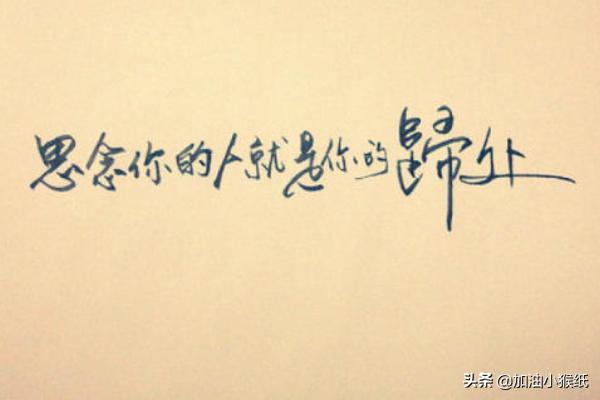 思念你的人就是你的歸处
头条 @加油小猴纸